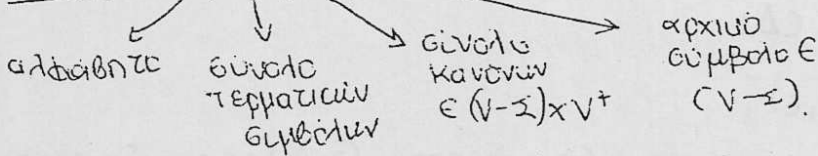 αλφάβητο
σύνολο
τερματικών
συμβόλων
σύνολο
κανόνων
∈ (V-Σ)×V⁺
αρχικό
σύμβολο ∈
(V-Σ).